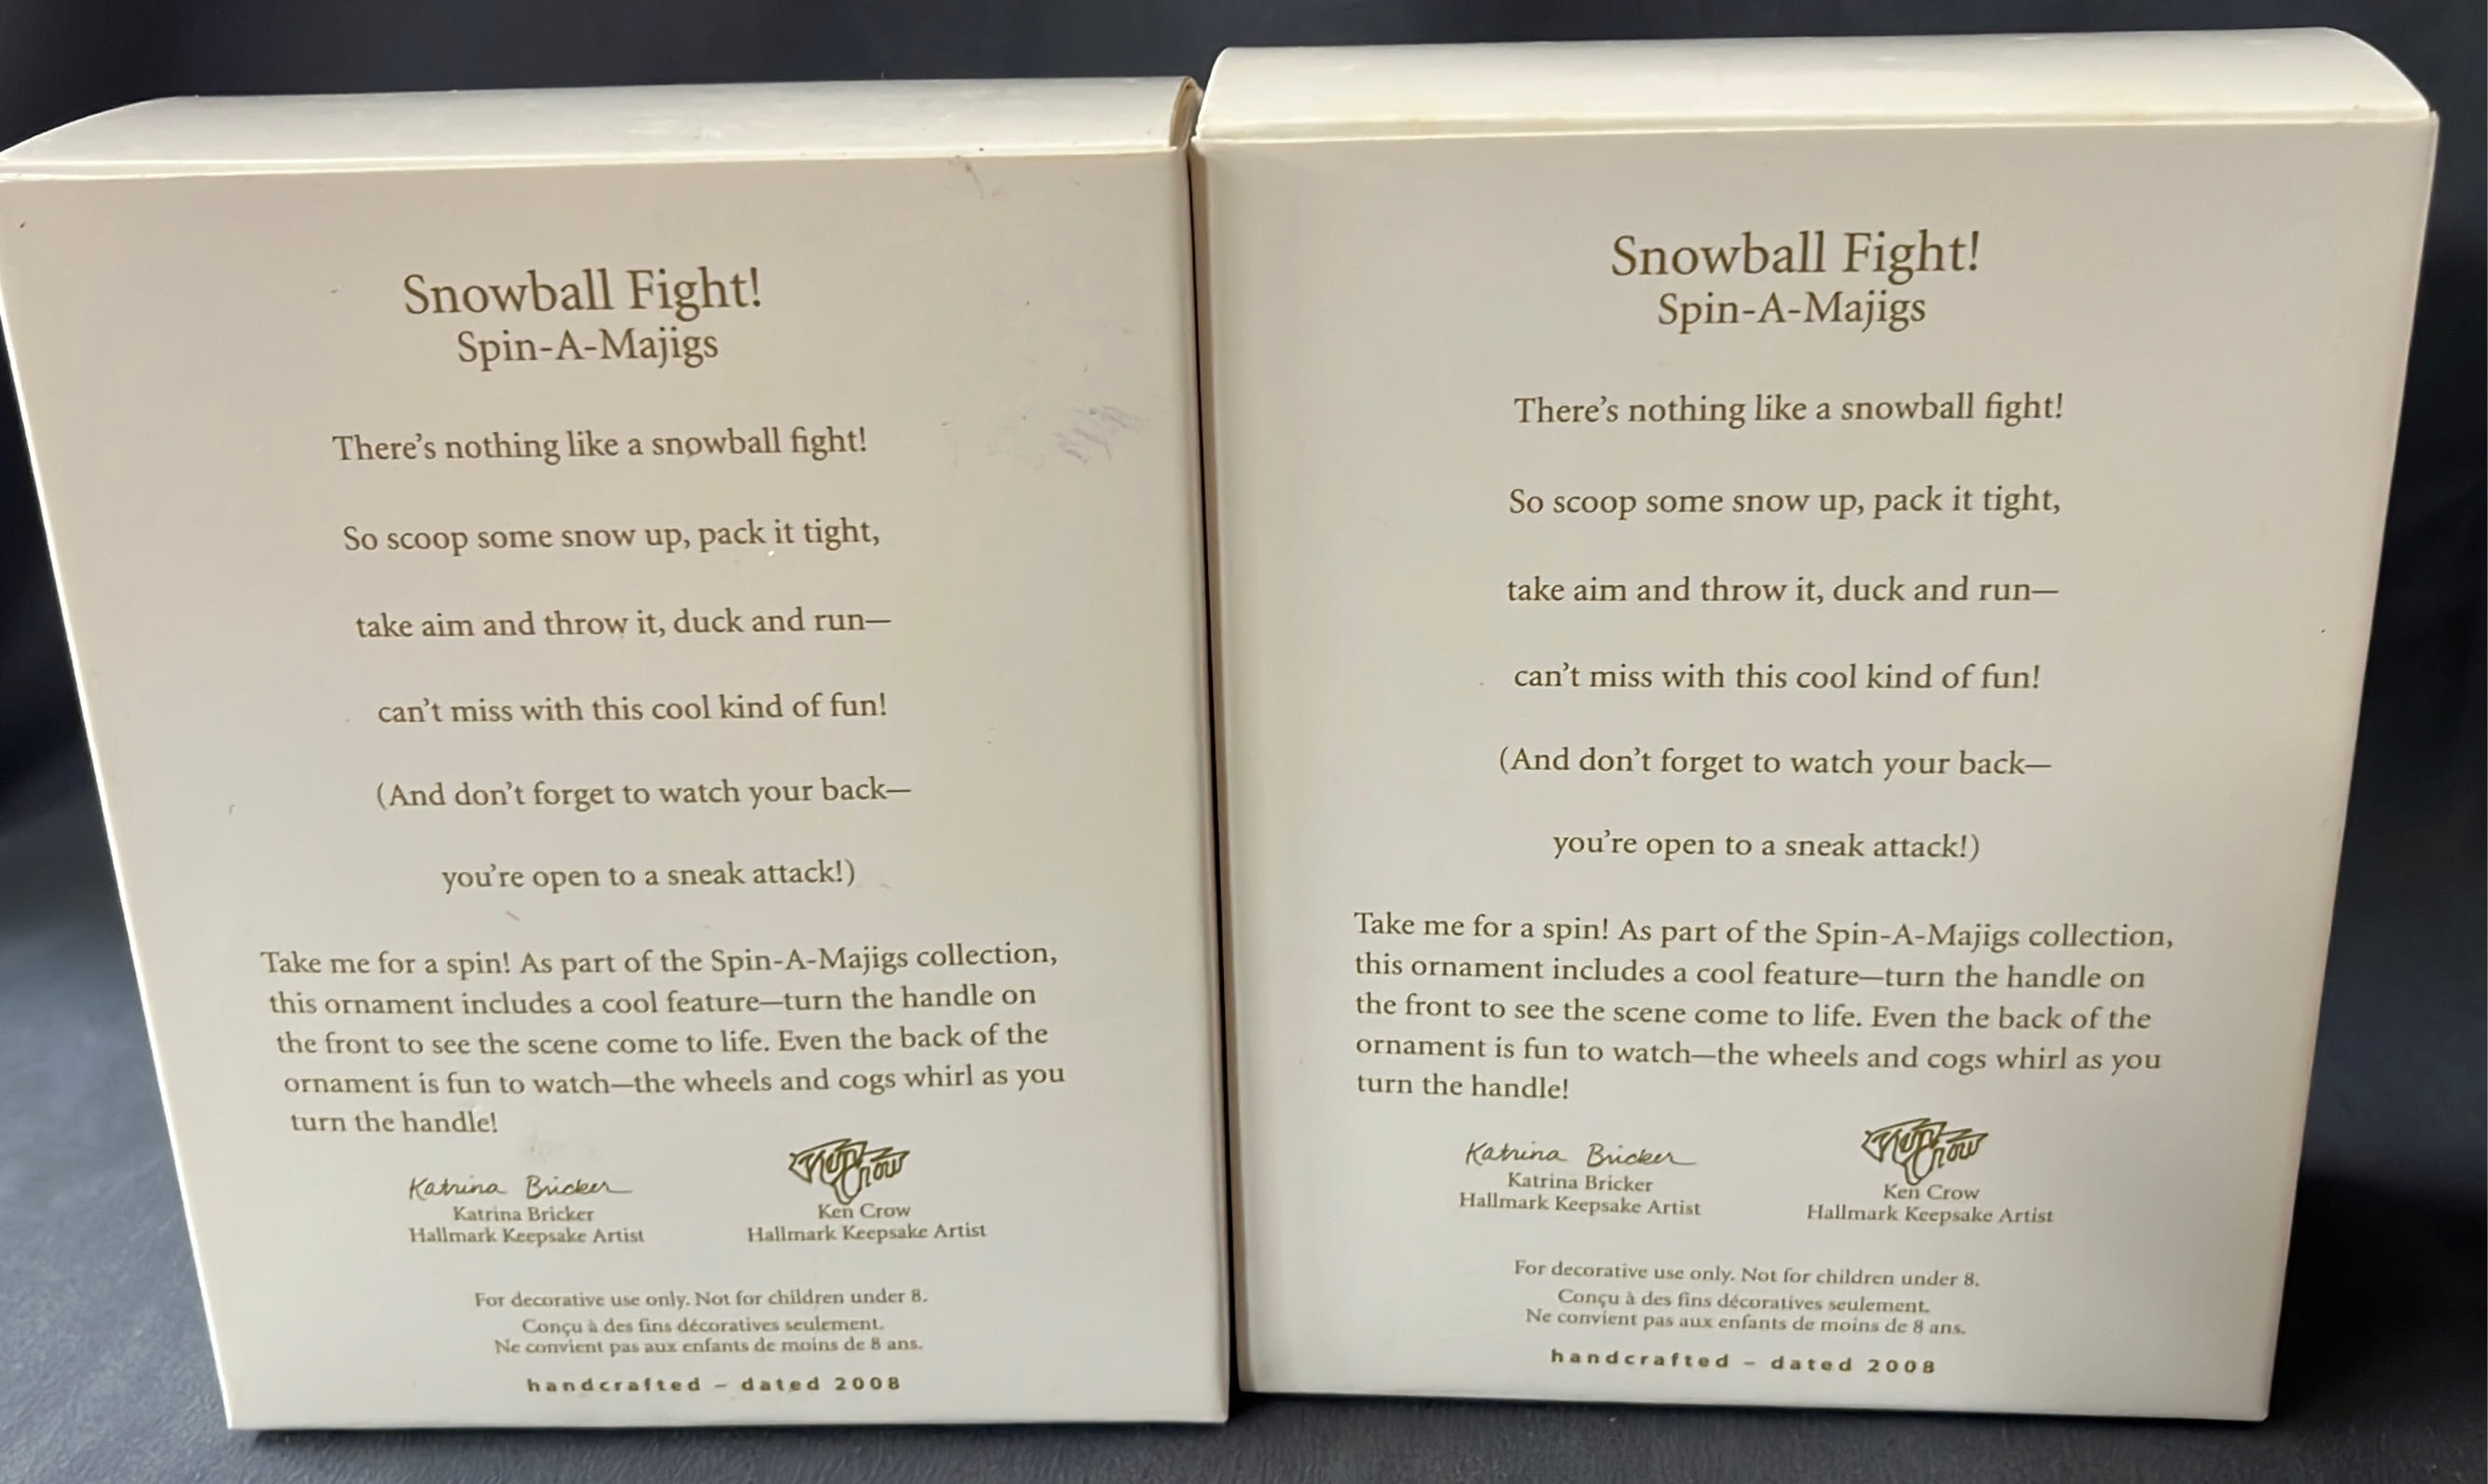 Snowball Fight!
Spin-A-Majigs
There's nothing like a snowball fight!
So scoop some snow up, pack it tight,
take aim and throw it, duck and run—
can't miss with this cool kind of fun!
(And don't forget to watch your back—
you're open to a sneak attack!)
Take me for a spin! As part of the Spin-A-Majigs collection,
this ornament includes a cool feature—turn the handle on
the front to see the scene come to life. Even the back of the
ornament is fun to watch—the wheels and cogs whirl as you
turn the handle!
Katrina Bricker
Katrina Bricker
Hallmark Keepsake Artist
Ken Crow
Ken Crow
Hallmark Keepsake Artist
For decorative use only. Not for children under 8.
Conçu à des fins décoratives seulement.
Ne convient pas aux enfants de moins de 8 ans.
handcrafted – dated 2008
Snowball Fight!
Spin-A-Majigs
There's nothing like a snowball fight!
So scoop some snow up, pack it tight,
take aim and throw it, duck and run—
can't miss with this cool kind of fun!
(And don't forget to watch your back—
you're open to a sneak attack!)
Take me for a spin! As part of the Spin-A-Majigs collection,
this ornament includes a cool feature—turn the handle on
the front to see the scene come to life. Even the back of the
ornament is fun to watch—the wheels and cogs whirl as you
turn the handle!
Katrina Bricker
Katrina Bricker
Hallmark Keepsake Artist
Ken Crow
Ken Crow
Hallmark Keepsake Artist
For decorative use only. Not for children under 8.
Conçu à des fins décoratives seulement.
Ne convient pas aux enfants de moins de 8 ans.
handcrafted – dated 2008